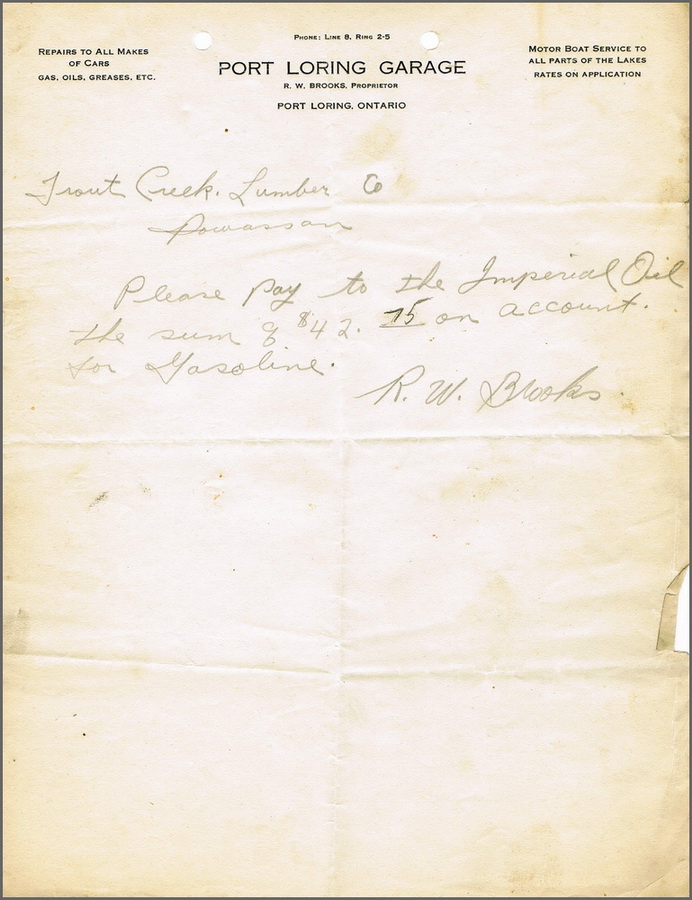 Phone: Line 8, Ring 2-5
Repairs to All Makes
of Cars
Gas, Oils, Greases, Etc.
PORT LORING GARAGE
R. W. Brooks, Proprietor
PORT LORING, ONTARIO
Motor Boat Service to
all parts of the Lakes
rates on application
Trout Creek Lumber Co
Powassan
Please Pay to the Imperial Oil
the sum of $42.75 on account.
for Gasoline.
R. W. Brooks.